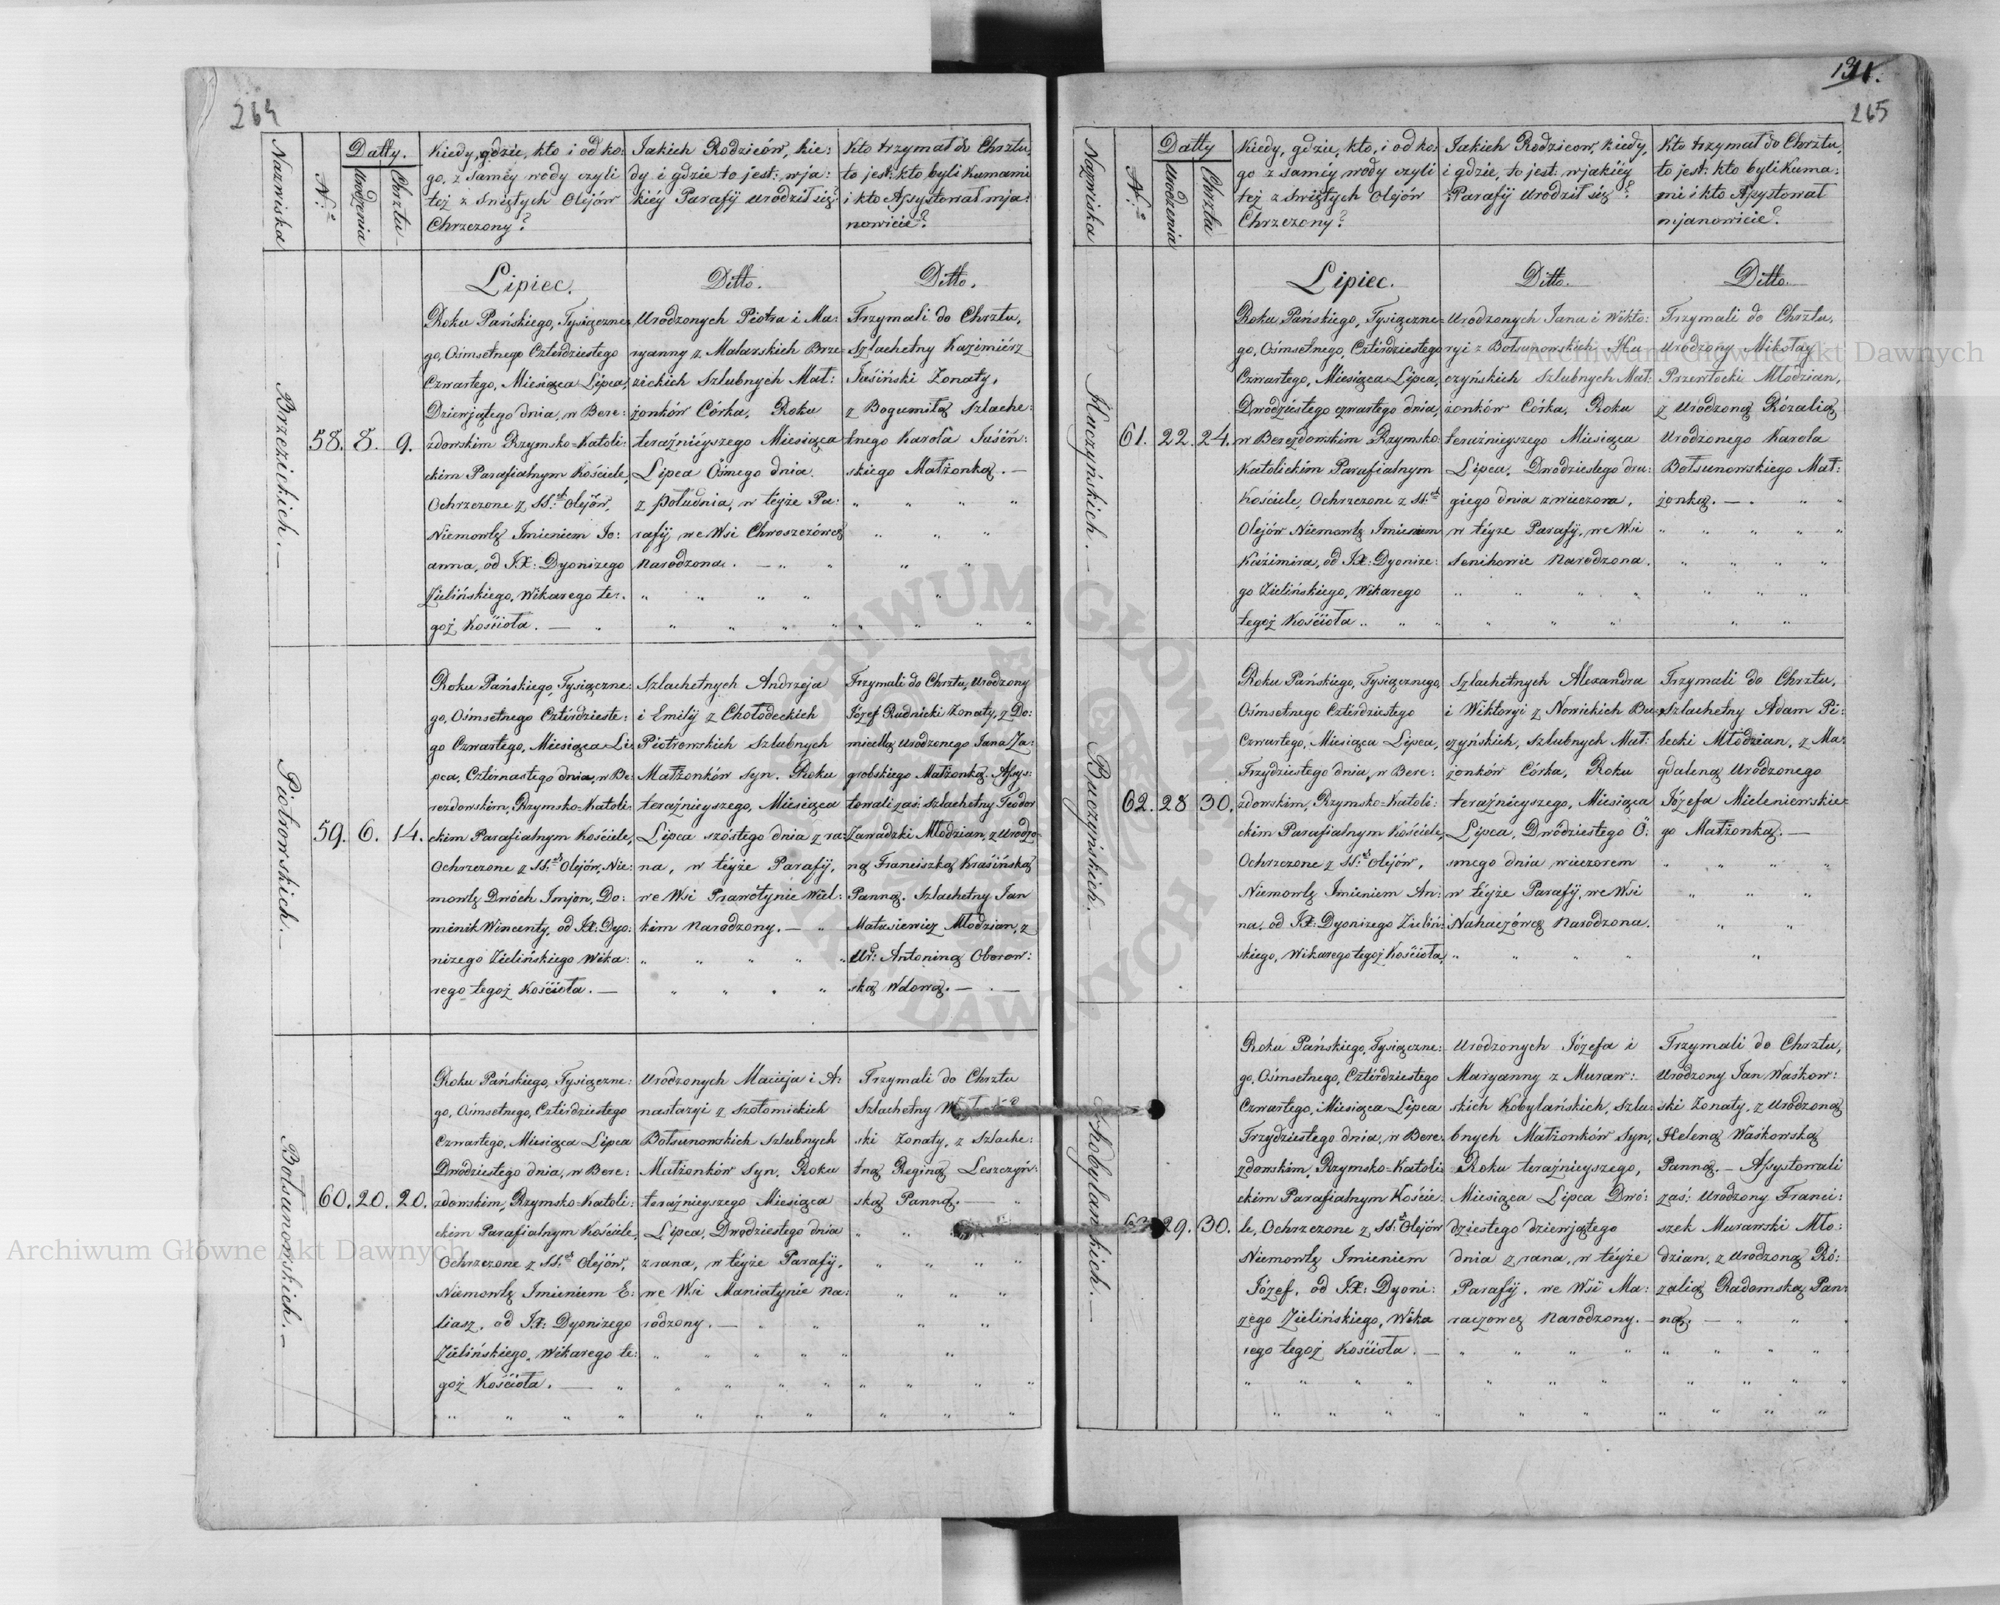 264
Nazwiska
N.º
Datty.
Urodzenia
Chrztu.
Kiedy, gdzie, kto i od ko:
go, z saméy wody czyli
téż z Swiętych Olejów
Chrzczony?
Jakich Rodziców, kie:
dy i gdzie to jest: w ja:
kiéy Parafij urodził się?
Kto trzymał do Chrztu,
to jest: kto byli Kumami
i kto Assystował mja:
nowicie?
Lipiec.
Ditto.
Ditto.
Brzezickich.—
58. 8. 9.
Roku Pańskiego, Tysiączne:
go, Ośmsetnego Czterdziestego
Czwartego, Miesiąca Lipca,
Dziewjątego dnia, w Bere:
zdowskim Rzymsko-Katoli:
ckim Parafialnym Kościele,
Ochrzczone z SS.ch Olejów,
Niemowlę Imieniem Jo:
anna, od JX: Dyonizego
Zielińskiego, Wikarego te:
goż Kościoła.—
Urodzonych Piotra i Ma:
ryanny z Malarskich Brze:
zickich Szlubnych Mał:
żonków Córka, Roku
teraźnieyszego Miesiąca
Lipca Ośmego dnia
z południa, w téyże Pa:
rafij, we Wsi Chwoszczówce
Narodzona.—
Trzymali do Chrztu,
Szlachetny Kazimiérz
Jasiński Zonaty,
z Bogumiłą Szlache:
tnego Karola Jasiń:
skiego Małżonką.—
Piotrowskich.—
59. 6. 14.
Roku Pańskiego, Tysiączne:
go, Ośmsetnego Cztérdzieste:
go Czwartego, Miesiąca Li:
pca, Czternastego dnia, w Be:
rezdowskim, Rzymsko-Katoli:
ckim Parafialnym Kościele,
Ochrzczone z SS.ch Olejów, Nie:
mowlę Dwóch Imjon, Do:
minik Wincenty, od JX: Dyo:
nizego Zielińskiego Wika:
rego tegoż Kościoła.—
Szlachetnych Andrzeja
i Emilij z Chołodeckich
Piotrowskich Szlubnych
Małżonków Syn, Roku
teraźnieyszego, Miesiąca
Lipca szóstego dnia z ra:
na, w téyże Parafij,
we Wsi Prawotynie Wiel:
kim Narodzony.—
Trzymali do Chrztu, Urodzony
Józef Rudnicki Zonaty, z Do:
micellą Urodzonego Jana Za:
grobskiego Małżonką. Assys:
towali zaś: Szlachetny Teodor
Zawadzki Młodzian, z Urodzo:
ną Franciszką Krasińską
Panną. Szlachetny Jan
Matusiewicz Młodzian, z
Ur: Antoniną Oborow:
ską Wdową.—
Bołsunowskich.—
60. 20. 20.
Roku Pańskiego, Tysiączne:
go, Ośmsetnego, Cztérdziestego
Czwartego, Miesiąca Lipca
Dwódziestego dnia, w Bere:
zdowskim, Rzymsko-Katoli:
ckim Parafialnym Kościele,
Ochrzczone z SS.ch Olejów,
Niemowlę Imieniem E:
liasz, od JX: Dyonizego
Zielińskiego, Wikarego te:
goż Kościoła.—
Urodzonych Macieja i A:
nastazyi z Szołomickich
Bołsunowskich Szlubnych
Małżonków Syn, Roku
teraźnieyszego Miesiąca
Lipca, Dwódziestego dnia
z rana, w téyże Parafij,
we Wsi Maniatynie Na:
rodzony.—
Trzymali do Chrztu
Szlachetny
ski Zonaty, z Szlache:
tną Reginą Leszczyń:
ską Panną.—
265
Nazwiska
N.º
Datty
Urodzenia
Chrztu
Kiedy, gdzie, kto, i od ko:
go z saméy wody czyli
téż z Swiętych Olejów
Chrzczony?
Jakich Rodzicow, kiedy,
i gdzie, to jest: w jakiéy
Parafij Urodził się?
Kto trzymał do Chrztu,
to jest: kto byli Kuma:
mi i kto Assystował
mjanowicie?
Lipiec.
Ditto.
Ditto.
Huczyńskich.—
61. 22. 24.
Roku Pańskiego, Tysiączne:
go, Ośmsetnego, Cztérdziestego
Czwartego, Miesiąca Lipca,
Dwódziestego czwartego dnia,
w Berezdowskim Rzymsko:
Katolickim Parafialnym
Kościele, Ochrzczone z SS.ch
Olejów Niemowlę Imieniem
Kazimira, od JX: Dyonize:
go Zielińskiego, Wikarego
tegoż Kościoła.
Urodzonych Jana i Wikto:
ryi z Bołsunowskich Hu:
czyńskich Szlubnych Mał:
żonków Córka, Roku
teraźnieyszego Miesiąca
Lipca, Dwódziestego dru:
giego dnia z wieczora,
w téyże Parafij, we Wsi
Senihowie Narodzona.
Trzymali do Chrztu,
Urodzony Mikołay
Przewłocki Młodzian,
z Urodzoną Rózalią
Urodzonego Karola
Bołsunowskiego Mał:
żonką.—
Buczyńskich.—
62. 28 30.
Roku Pańskiego, Tysiącznego,
Ośmsetnego Cztérdziestego
Czwartego, Miesiąca Lipca,
Trzydziestego dnia, w Bere:
zdowskim, Rzymsko-Katoli:
ckim Parafialnym Kościele,
Ochrzczone z SS.ch Olejów,
Niemowlę Imieniem An:
na, od JX: Dyonizego Zieliń:
skiego, Wikarego tegoż Kościoła.
Szlachetnych Alexandra
i Wiktoryi z Nowickich Bu:
czyńskich, Szlubnych Mał:
żonków Córka, Roku
teraźnieyszego, Miesiąca
Lipca, Dwódziestego Ó:
smego dnia wieczorem
w téyże Parafij, we Wsi
Nahaczówce Narodzona.
Trzymali do Chrztu,
Szlachetny Adam Pi:
lecki Młodzian, z Ma:
gdaleną Urodzonego
Józefa Mieleniewskie:
go Małżonką.—
Kobylańskich.—
63. 29. 30.
Roku Pańskiego, Tysiączne:
go, Ośmsetnego, Cztérdziestego
Czwartego, Miesiąca Lipca
Trzydziestego dnia, w Bere:
zdowskim, Rzymsko-Katoli:
ckim Parafialnym Koście:
le, Ochrzczone z SS.ch Olejów
Niemowlę Imieniem
Józef, od JX: Dyoni:
zego Zielińskiego, Wika
rego tegoż Kościoła.—
Urodzonych Józefa i
Maryanny z Muraw:
skich Kobylańskich, Szlu:
bnych Małżonków Syn,
Roku teraźnieyszego,
Miesiąca Lipca Dwó:
dziestego dziewjątego
dnia z rana, w téyże
Parafij, we Wsi Ma:
raczowce Narodzony.—
Trzymali do Chrztu,
Urodzony Jan Waśkow:
ski Zonaty, z Urodzoną
Heleną Waśkowską
Panną.— Assystowali
zaś: Urodzony Franci:
szek Murawski Mło:
dzian, z Urodzoną Ró:
zalią Radomską Pan:
ną.—
Archiwum Główne Akt Dawnych
Archiwum Główne Akt Dawnych
ARCHIWUM GŁÓWNE AKT DAWNYCH